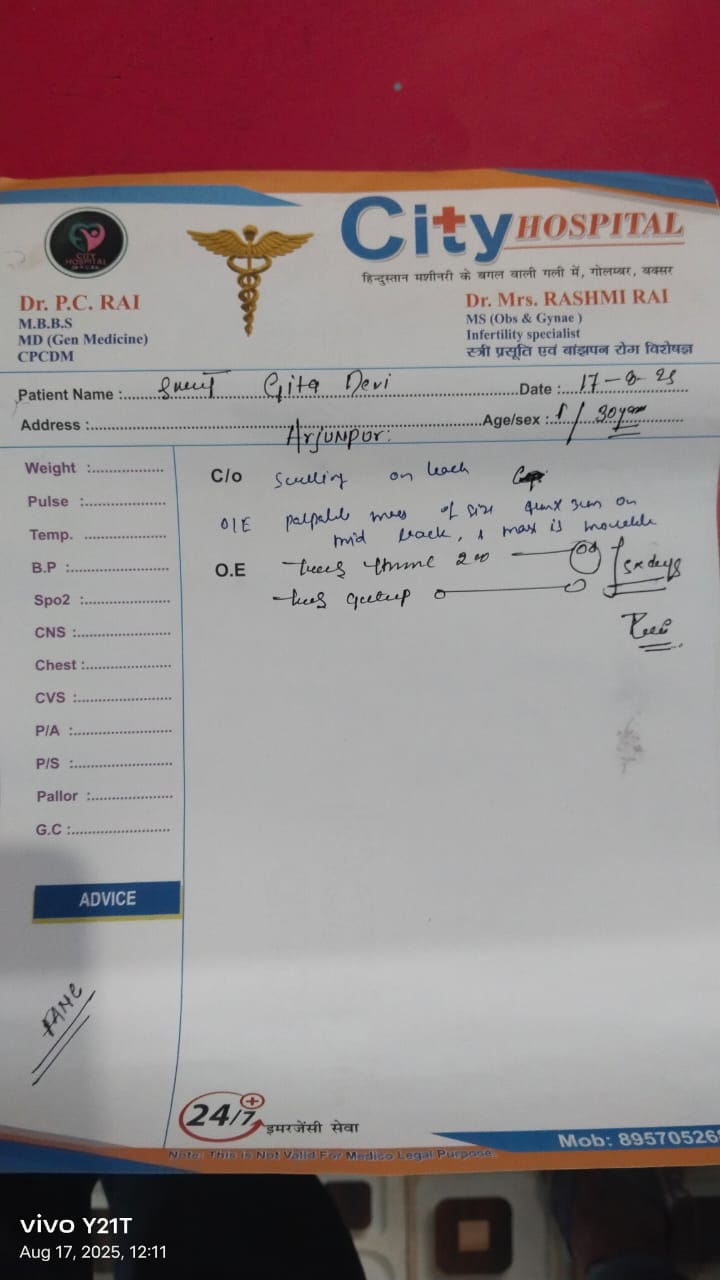 City HOSPITAL
हिन्दुस्तान मशीनरी के बगल वाली गली में, गोलम्बर, बक्सर
CITY
HOSPITAL
Dr. P.C. RAI
M.B.B.S
MD (Gen Medicine)
CPCDM
Dr. Mrs. RASHMI RAI
MS (Obs & Gynae )
Infertility specialist
स्त्री प्रसूति एवं बांझपन रोग विशेषज्ञ
Patient Name : Gita Devi Date : 17-8-25
Address : Arjunpur. Age/sex : / 30
Weight :
Pulse :
Temp.
B.P :
Spo2 :
CNS :
Chest :
CVS :
P/A :
P/S :
Pallor :
G.C :
C/o on back
O/E of size on
mid back, is
O.E 200 5x days
ADVICE
24/7 इमरजेंसी सेवा
Mob: 895705268
Note: This is Not Valid For Medico Legal Purpose.
vivo Y21T
Aug 17, 2025, 12:11